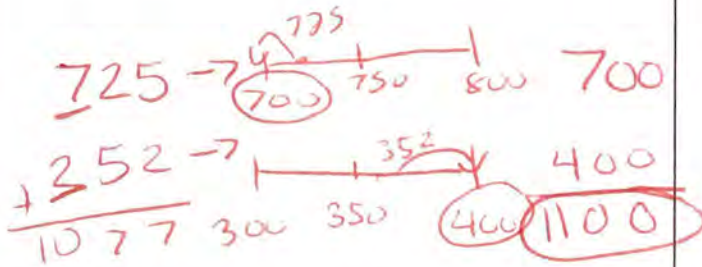 725
725 → 700 750 800 700
+ 352 → 352 400
1077 300 350 400 1100